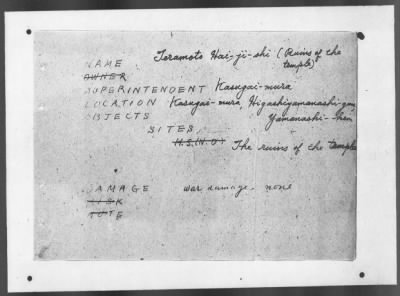 NAME Teramoto Hai-ji-shi (Ruins of the
temple)
OWNER
SUPERINTENDENT Kasugai-mura
LOCATION Kasugai-mura, Higashiyamanashi-gun,
Yamanashi-ken
OBJECTS
SITES
H.S.(N.O) The ruins of the temple
DAMAGE war damage. none
RISK
NOTE